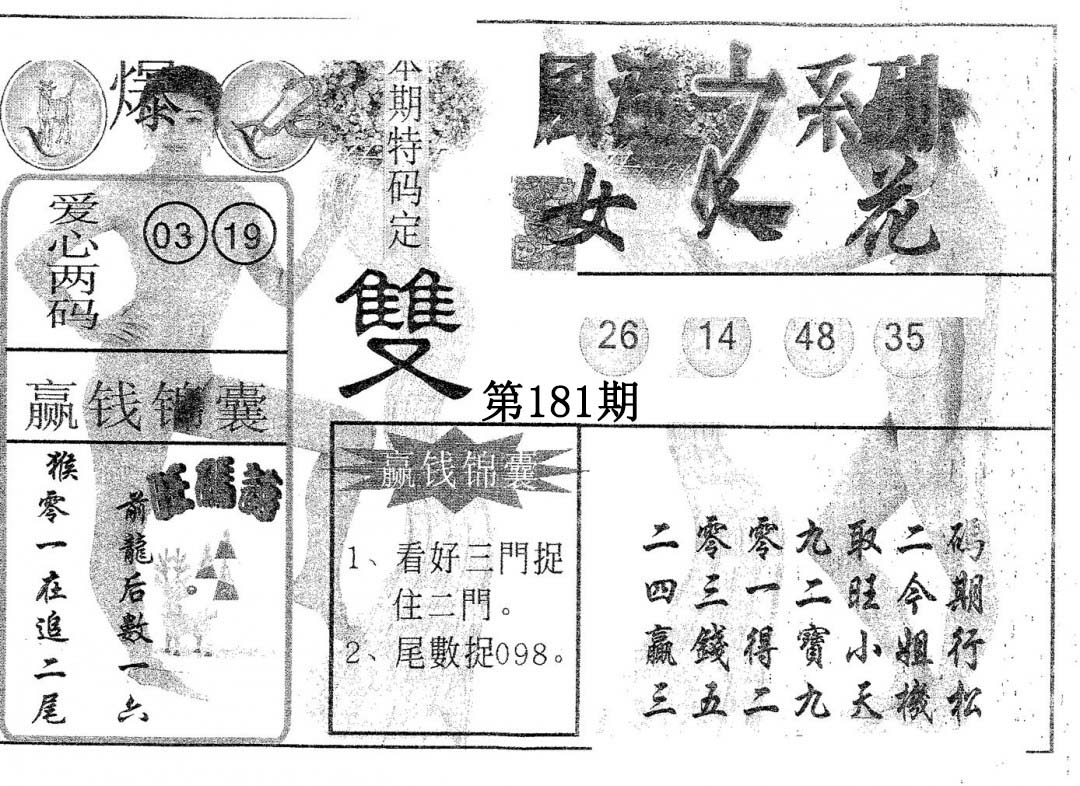 爆
本期特码定
雙
之系列
女 花
爱心两码
03 19
26 14 48 35
第181期
赢钱锦囊
猴零一在追二尾
前龍后數一六
赢钱锦囊
1、看好三門捉
住二門。
2、尾數捉098。
二零零九取二码
四三一二旺今期
贏錢得寶小姐行
三五二九天機松